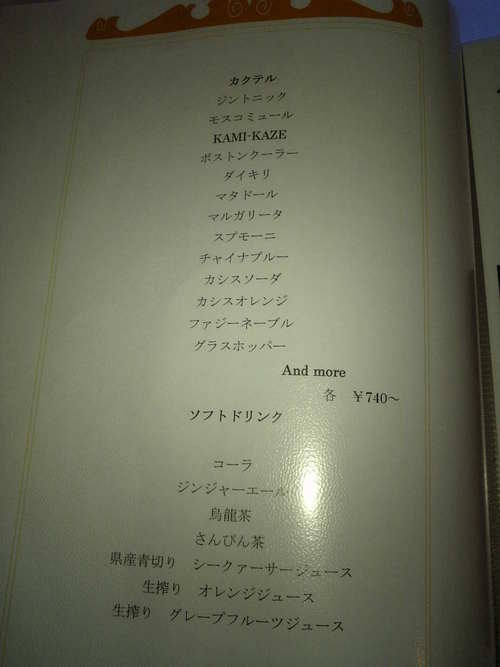 カクテル
ジントニック
モスコミュール
KAMI-KAZE
ボストンクーラー
ダイキリ
マタドール
マルガリータ
スプモーニ
チャイナブルー
カシスソーダ
カシスオレンジ
ファジーネーブル
グラスホッパー
And more
各 ￥740～
ソフトドリンク
コーラ
ジンジャーエール
烏龍茶
さんぴん茶
県産青切り シークァーサージュース
生搾り オレンジジュース
生搾り グレープフルーツジュース